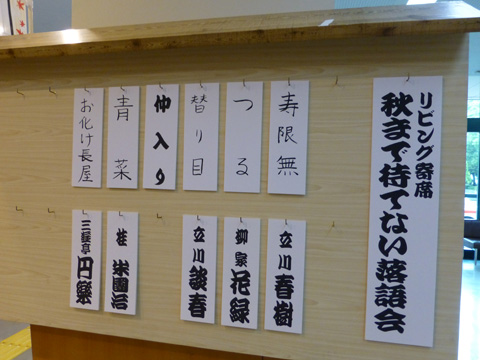 リビング寄席
秋まで待てない落語会
寿限無
立川 春樹
つる
柳家 花緑
替り目
立川 談春
仲入り
青菜
桂 米團治
お化け長屋
三遊亭 円樂